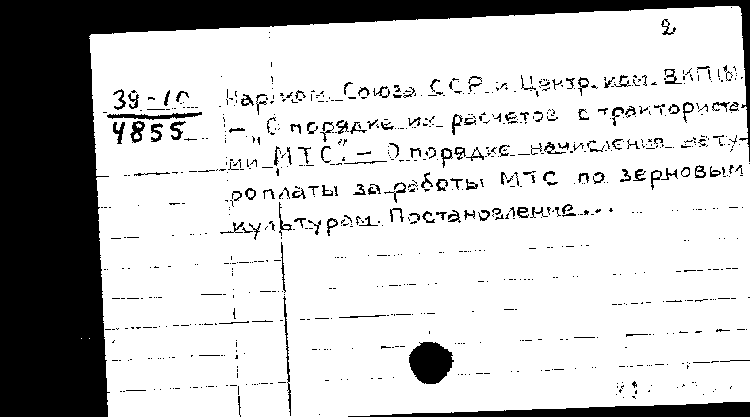 2
39-10
4855
Нар. ком. Союза ССР и Центр. ком. ВКП(б).
— „О порядке их расчетов с тракториста-
ми МТС". — О порядке начисления нату-
роплаты за работы МТС по зерновым
культурам. Постановление...